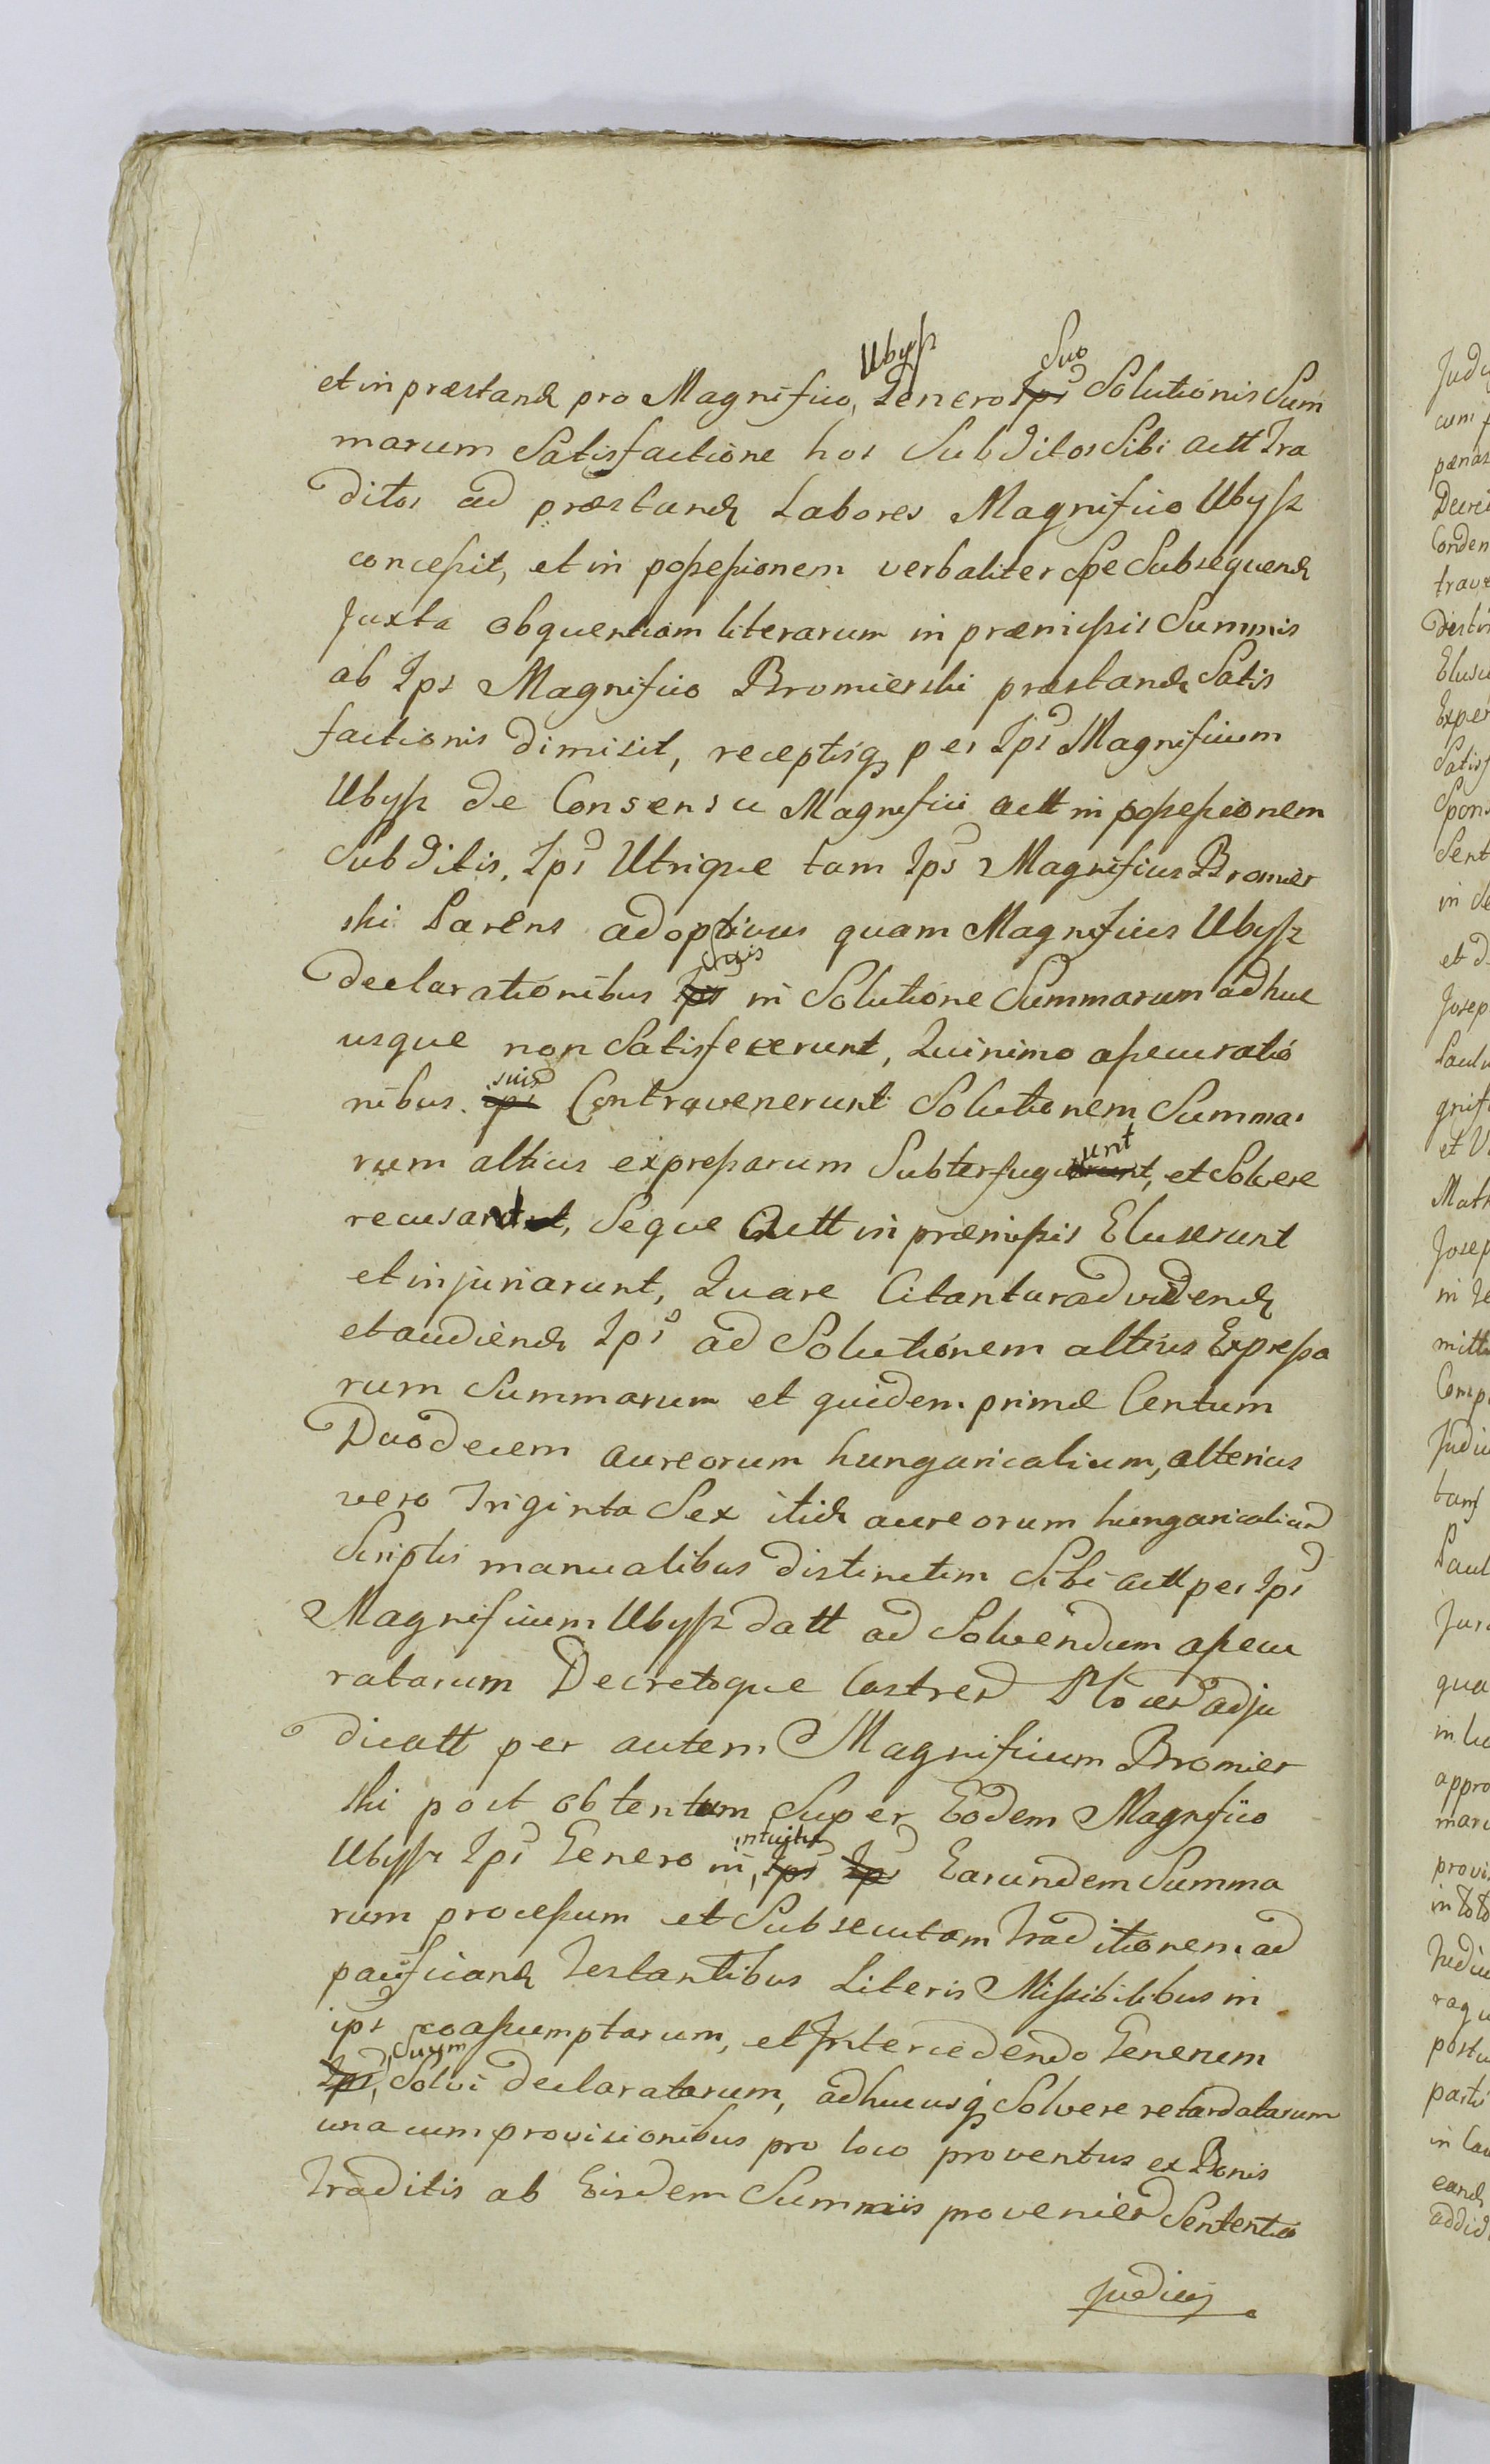 et in præstand pro Magnifico, Ubysz Genero Ips Suo Solutionis Sum
marum Satisfactione hos Subditos Sibi actt tra
ditos ad præstand Labores Magnifico Ubysz
concessit, et in possessionem verbaliter Spe Subsequend
juxta obquentiam literarum in præmissis Summis
ab Ips Magnifico Bromierski præstand Satis
factionis dimisit, receptisq per Ips Magnificum
Ubysz de Consensu Magnifici actt in possessionem
Subditis, Ips Utrique tam Ips Magnificus Bromier
ski Parens adoptivus quam Magnificus Ubysz
declarationibus Ips Suis in Solutione Summarum adhuc
usque non Satisfecerunt, Quinimo assecuratio
nibus ips suis Contravenerunt Solutionem Summa
rum altius expressarum Subterfugiunt, et Solvere
recusant, Seque Actt in præmissis Eluserunt
et injuriarunt, Quare Citantur ad vidend
et audiend Ips ad Solutionem altius Expressa
rum Summarum et quidem primæ Centum
Duodecem aureorum hungaricalium, alterius
vero Triginta Sex itid aureorum hungaricalium
Scriptis manualibus distinctim Sibi actt per Ips
Magnificum Ubysz datt ad Solvendum assecu
ratarum Decretoque Castren Plocen adju
dicatt per autem Magnificum Bromier
ski post obtentum Super Eodem Magnifico
Ubysz Ips Genero in, Ips Ips intuitu Earundem Summa
rum processum et Subsecutam Traditionem ad
pacificand Testantibus Literis Missibilibus in
ips coassumptarum, et Intercedendo Generum
Ips, Suum Solvi declaratarum, adhucusq Solvere retardatarum
una cum provisionibus pro loco proventus ex Bonis
Traditis ab Eisdem Summis provenien Sententia
Judicij
Judi
cum
pœnas
Decre
Conden
trave
distin
Elusu
Exper
Satisf
Spon
Sent
in de
et d
Josep
Paul
gnifi
et U
Math
Josep
in
mitt
Comp
Judic
tam
Paul
Jur
qua
in
appro
mar
provi
in toto
Judic
rag
postu
parti
in Cau
eand
addid